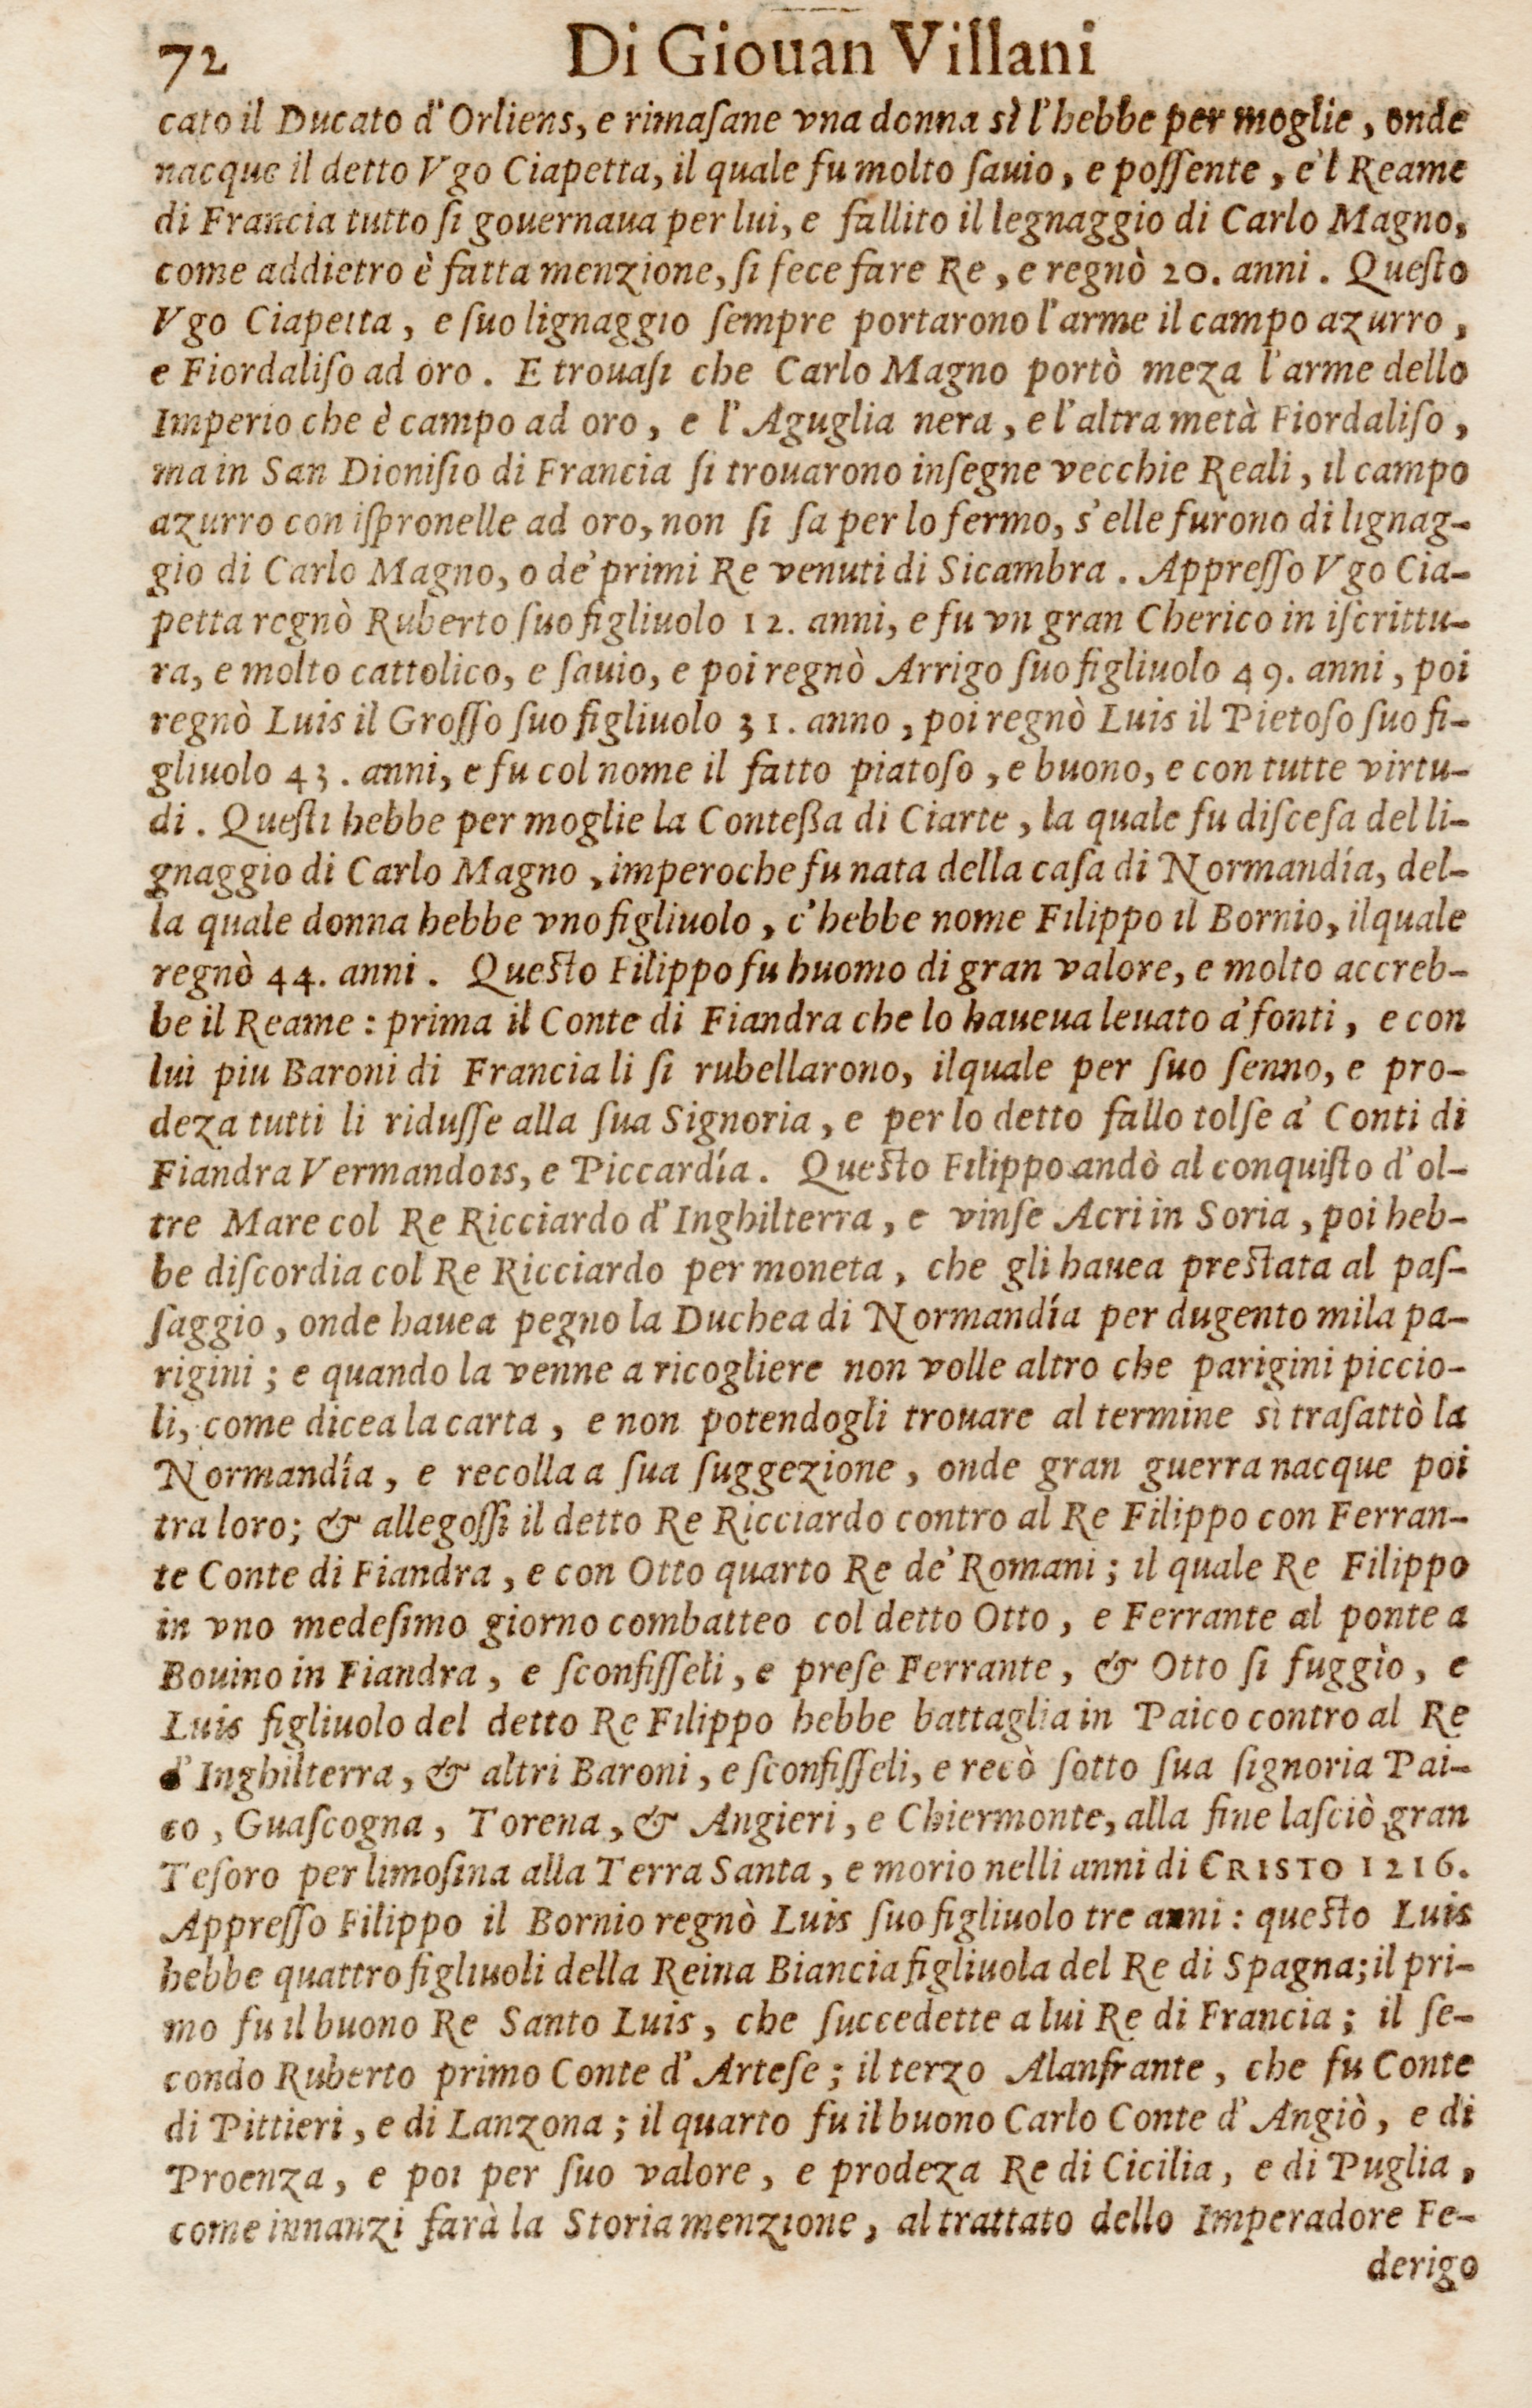 72 Di Giouan Villani
cato il Ducato d'Orliens, e rimaſane vna donna sì l'hebbe per moglie, onde
nacque il detto Vgo Ciapetta, il quale fu molto ſauio, e poſſente, e'l Reame
di Francia tutto ſi gouernaua per lui, e fallito il legnaggio di Carlo Magno,
come addietro è fatta menzione, ſi fece fare Re, e regnò 20. anni. Queſto
Vgo Ciapetta, e ſuo lignaggio ſempre portarono l'arme il campo azurro,
e Fiordaliſo ad oro. E trouaſi che Carlo Magno portò meza l'arme dello
Imperio che è campo ad oro, e l'Aguglia nera, e l'altra metà Fiordaliſo,
ma in San Dioniſio di Francia ſi trouarono inſegne vecchie Reali, il campo
azurro con iſpronelle ad oro, non ſi ſa per lo fermo, s'elle furono di lignag-
gio di Carlo Magno, o de' primi Re venuti di Sicambra. Appreſſo Vgo Cia-
petta regnò Ruberto ſuo figliuolo 12. anni, e fu vn gran Cherico in iſcrittu-
ra, e molto cattolico, e ſauio, e poi regnò Arrigo ſuo figliuolo 49. anni, poi
regnò Luis il Groſſo ſuo figliuolo 31. anno, poi regnò Luis il Pietoſo ſuo fi-
gliuolo 43. anni, e fu col nome il fatto piatoſo, e buono, e con tutte virtu-
di. Queſti hebbe per moglie la Conteßa di Ciarte, la quale fu diſceſa del li-
gnaggio di Carlo Magno, imperoche fu nata della caſa di Normandía, del-
la quale donna hebbe vno figliuolo, c'hebbe nome Filippo il Bornio, ilquale
regnò 44. anni. Queſto Filippo fu huomo di gran valore, e molto accreb-
be il Reame: prima il Conte di Fiandra che lo haueua leuato a' fonti, e con
lui piu Baroni di Francia li ſi rubellarono, ilquale per ſuo ſenno, e pro-
deza tutti li riduſſe alla ſua Signoria, e per lo detto fallo tolſe a' Conti di
Fiandra Vermandois, e Piccardía. Queſto Filippo andò al conquiſto d'ol-
tre Mare col Re Ricciardo d'Inghilterra, e vinſe Acri in Soria, poi heb-
be diſcordia col Re Ricciardo per moneta, che gli hauea preſtata al paſ-
ſaggio, onde hauea pegno la Duchea di Normandía per dugento mila pa-
rigini; e quando la venne a ricogliere non volle altro che parigini piccio-
li, come dicea la carta, e non potendogli trouare al termine sì traſattò la
Normandía, e recolla a ſua ſuggezione, onde gran guerra nacque poi
tra loro; & allegoſſi il detto Re Ricciardo contro al Re Filippo con Ferran-
te Conte di Fiandra, e con Otto quarto Re de' Romani; il quale Re Filippo
in vno medeſimo giorno combatteo col detto Otto, e Ferrante al ponte a
Bouino in Fiandra, e ſconfiſſeli, e preſe Ferrante, & Otto ſi fuggìo, e
Luis figliuolo del detto Re Filippo hebbe battaglia in Paico contro al Re
d'Inghilterra, & altri Baroni, e ſconfiſſeli, e recò ſotto ſua ſignoria Pai-
co, Guaſcogna, Torena, & Angieri, e Chiermonte, alla fine laſciò gran
Teſoro per limoſina alla Terra Santa, e morio nelli anni di CRISTO 1216.
Appreſſo Filippo il Bornio regnò Luis ſuo figliuolo tre anni: queſto Luis
hebbe quattro figliuoli della Reina Biancia figliuola del Re di Spagna; il pri-
mo fu il buono Re Santo Luis, che ſuccedette a lui Re di Francia; il ſe-
condo Ruberto primo Conte d'Arteſe; il terzo Alanfrante, che fu Conte
di Pittieri, e di Lanzona; il quarto fu il buono Carlo Conte d'Angiò, e di
Proenza, e poi per ſuo valore, e prodeza Re di Cicilia, e di Puglia,
come innanzi farà la Storia menzione, al trattato dello Imperadore Fe-
derigo